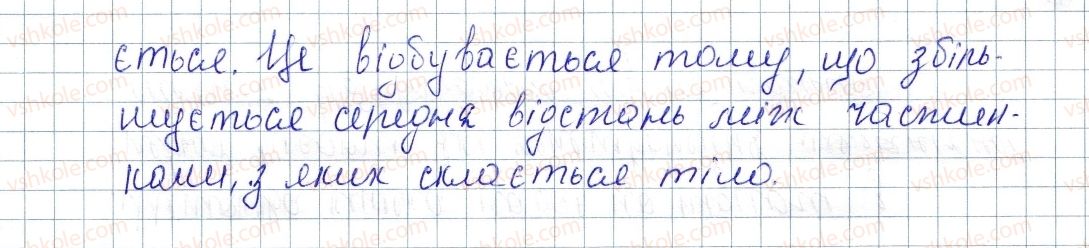 ється. Це відбувається тому, що збіль-
шується середня відстань між частин-
ками, з яких склається тіло.